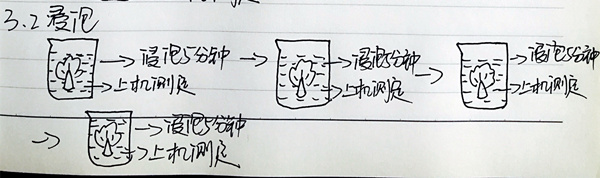 3.2 浸泡
→浸泡5分钟 → →浸泡5分钟 → →浸泡5分钟
→上机测定 →上机测定 →上机测定
→ →浸泡5分钟
→上机测定